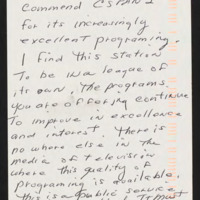 commend CSPAN 2
for its increasingly
excellent programing.
I find this station
To be in a league of
its own. The programs
you are offering continue
To improve in excellence
and interest. There is
no where else in the
media of television
where this quality of
programing is available.
this is a public service
It must